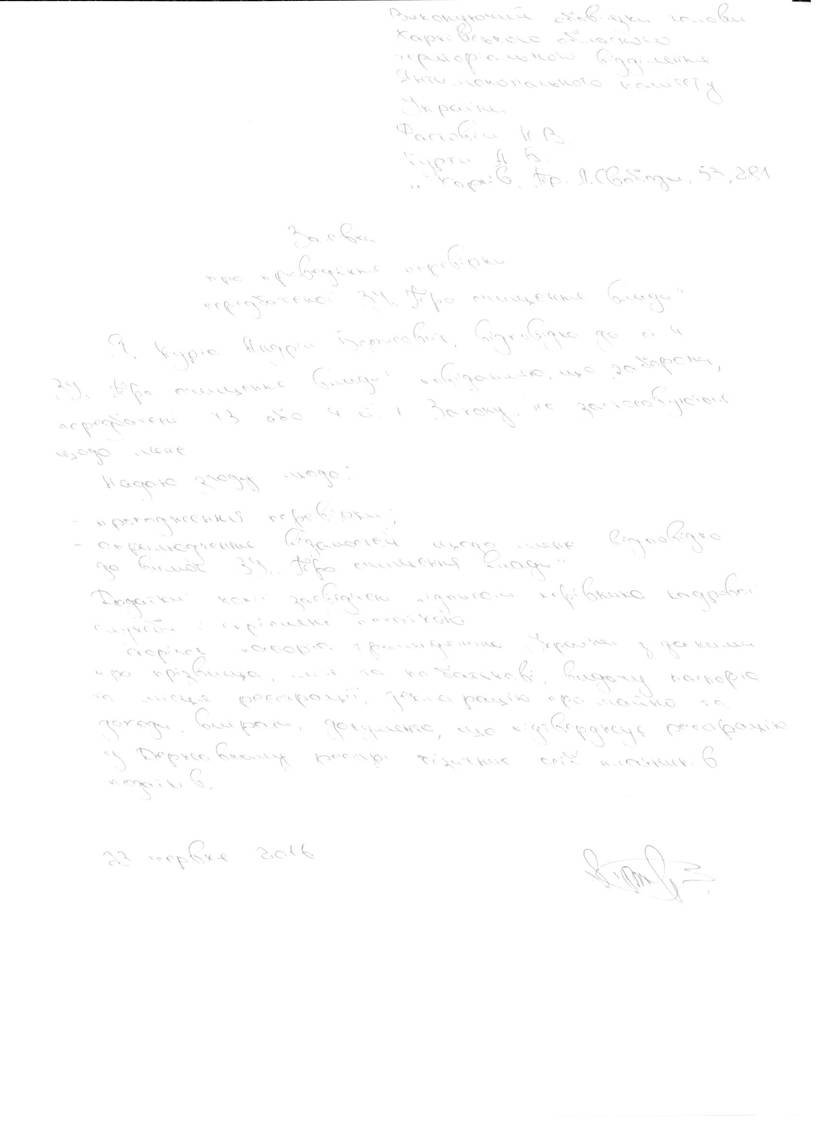 Виконуючий обов'язки голови
Харківського обласного
територіального відділення
Антимонопольного комітету
України
Н В
А Б.
Харків, пр. Л. Свободи, 53, 281
Заява
про проведення перевірки
передбаченої ЗУ „Про очищення влади"
Я, Андрій Борисович, відповідно до ст 4
ЗУ „Про очищення влади" повідомляю, що заборони,
передбачені ч 3 або 4 ст 1 Закону не застосовуються
щодо мене
Надаю згоду щодо:
- проходження перевірки;
- оприлюднення відомостей щодо мене відповідно
до вимог ЗУ „Про очищення влади"
Додатки копії засвідчені підписом керівника кадрової
служби і скріплені печаткою
сторінок паспорта громадянина України з даними
про прізвище, ім'я та по батькові, видачу паспорта
та місце реєстрації, декларацію про майно та
доходи, витрати, документа, що підтверджує реєстрацію
у Державному реєстрі фізичних осіб платників
податків.
23 червня 2016